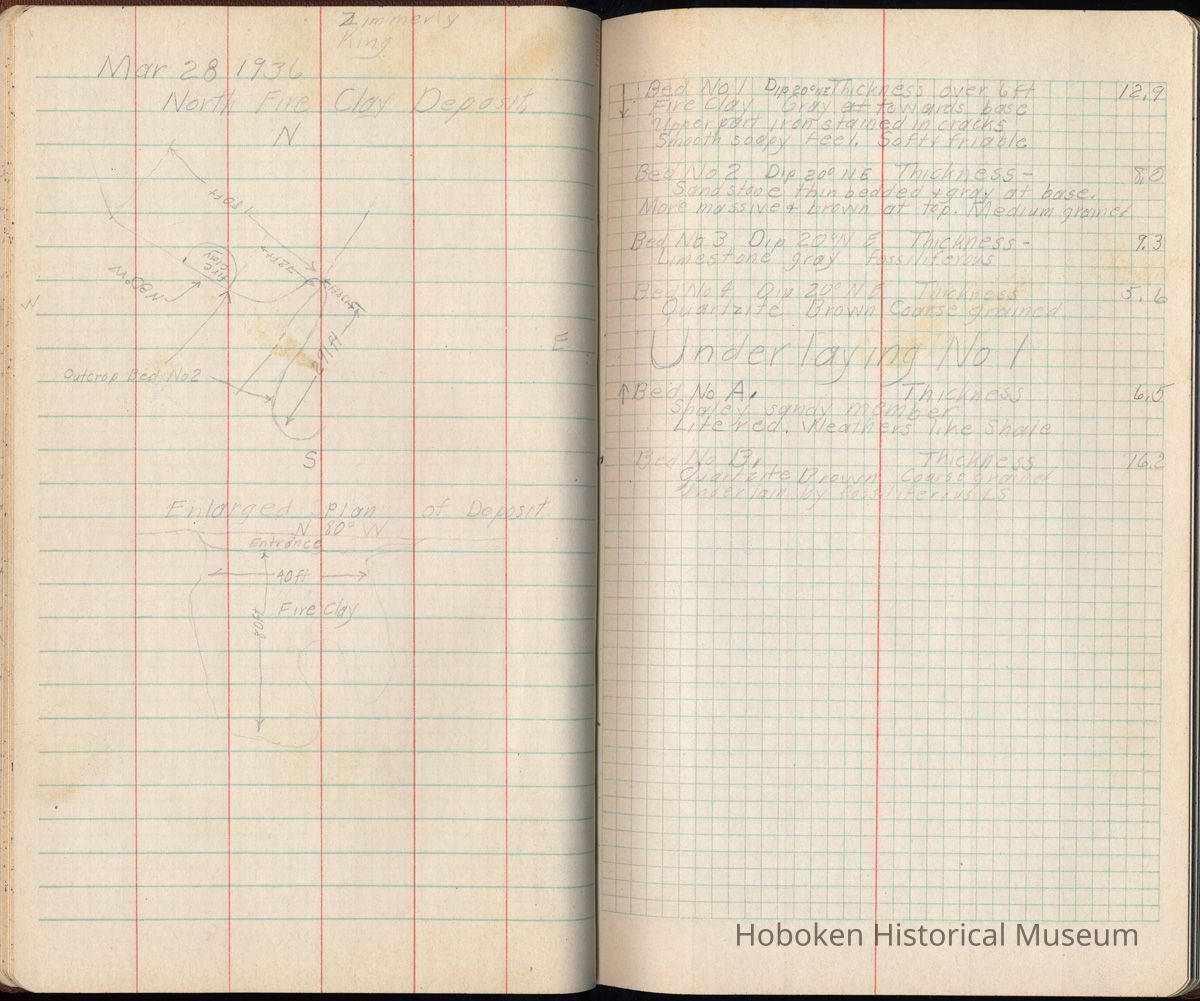 Zimmerly
King
Mar 28 1936
North Fire Clay Deposit
N
180ft
72ft
Fire
Clay
N80°W
W
E
291ft
Outcrop Bed No2
S
Enlarged Splan of Deposit
N 80° W
Entrance
40ft
Fire Clay
80ft
↓ Bed No 1 Dip 20°NE Thickness over 6ft 12.9
Fire Clay Gray at towards base
Upper part iron stained in cracks
Smooth soapy feel. Soft & friable
Bed No 2 Dip 20° NE Thickness- 8.0
Sandstone thin bedded & gray at base.
More massive & brown at top. Medium grained
Bed No 3, Dip 20°N E. Thickness- 9.3
Limestone gray fossiliferous
Bed No 4 Dip 20° N E Thickness 5.6
Quartzite Brown Coarse grained
Underlaying No 1
↑ Bed No A. Thickness 6.5
Shaley sandy member
Lite red. Weathers like Shale
Bed No B. Thickness 16.2
Quartzite Brown Coarse grained
Underlain by fossiliferous LS
Hoboken Historical Museum